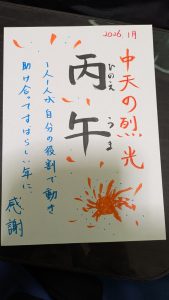 2026.1月
中天の烈光
丙午
ひのえ うま
1人1人が自分の役割で動き
助け合ってすばらしい年に、
感謝